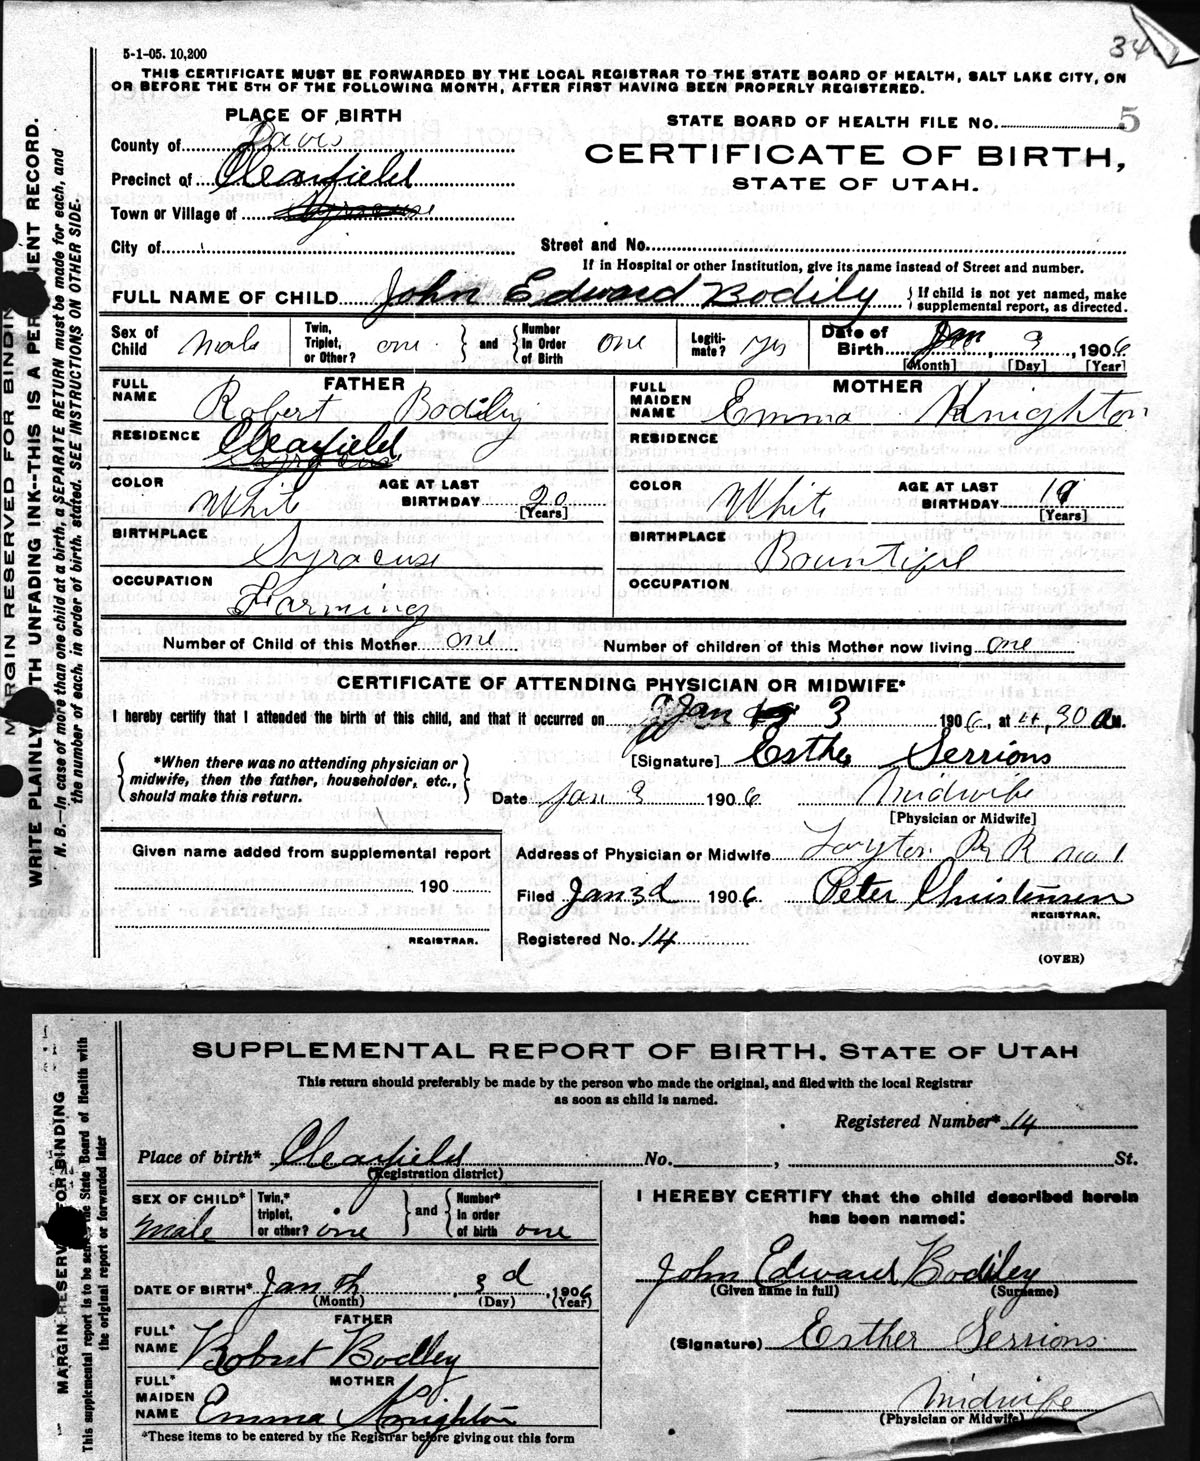 34
5-1-05. 10,200
THIS CERTIFICATE MUST BE FORWARDED BY THE LOCAL REGISTRAR TO THE STATE BOARD OF HEALTH, SALT LAKE CITY, ON
OR BEFORE THE 5TH OF THE FOLLOWING MONTH, AFTER FIRST HAVING BEEN PROPERLY REGISTERED.
PLACE OF BIRTH
STATE BOARD OF HEALTH FILE NO. 5
County of Davis
CERTIFICATE OF BIRTH,
Precinct of Clearfield
STATE OF UTAH.
Town or Village of Syracuse
City of
Street and No.
If in Hospital or other Institution, give its name instead of Street and number.
FULL NAME OF CHILD John Edward Bodily { If child is not yet named, make
supplemental report, as directed.
Sex of Child Male Twin, Triplet, or Other? one } and { Number in Order of Birth one Legitimate? yes Date of Birth Jan, 3, 1906
[Month] [Day] [Year]
FATHER MOTHER
FULL NAME Robert Bodily FULL MAIDEN NAME Emma Knighton
RESIDENCE Clearfield RESIDENCE
Syracuse
COLOR White AGE AT LAST BIRTHDAY 20 [Years] COLOR White AGE AT LAST BIRTHDAY 19 [Years]
BIRTHPLACE Syracuse BIRTHPLACE Bountiful
OCCUPATION Farming OCCUPATION
Number of Child of this Mother one Number of children of this Mother now living one
CERTIFICATE OF ATTENDING PHYSICIAN OR MIDWIFE*
I hereby certify that I attended the birth of this child, and that it occurred on Jan 3 1906, at 30 a M.
[Signature] Esther Serrions
{ *When there was no attending physician or
midwife, then the father, householder, etc.,
should make this return. }
Date Jan 3 1906 Midwife
[Physician or Midwife]
Given name added from supplemental report
Address of Physician or Midwife Layton R R no 1
190
Filed Jan 3d 1906. Peter Christensen
REGISTRAR.
REGISTRAR.
Registered No. 14
(OVER)
MARGIN RESERVED FOR BINDING
WRITE PLAINLY WITH UNFADING INK--THIS IS A PERMANENT RECORD.
N. B.—In case of more than one child at a birth, a SEPARATE RETURN must be made for each, and
the number of each, in order of birth, stated. SEE INSTRUCTIONS ON OTHER SIDE.
SUPPLEMENTAL REPORT OF BIRTH. STATE OF UTAH
This return should preferably be made by the person who made the original, and filed with the local Registrar
as soon as child is named.
Registered Number* 14
Place of birth* Clearfield No. , St.
(Registration district)
SEX OF CHILD* Male Twin,* triplet, or other? one } and { Number* in order of birth one
I HEREBY CERTIFY that the child described herein
has been named:
DATE OF BIRTH* Jan th, 3d, 1906
(Month) (Day) (Year)
John Edward Bodiley
(Given name in full) (Surname)
FATHER
FULL* NAME Robert Bodley
(Signature) Esther Serrions
MOTHER
FULL* MAIDEN NAME Emma Knighton
Midwife
(Physician or Midwife)
*These items to be entered by the Registrar before giving out this form
MARGIN RESERVED FOR BINDING
This supplemental report is to be sent the State Board of Health with
the original report or forwarded later